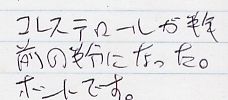 コレステロールが幹
前の幹になった。
ホントです。